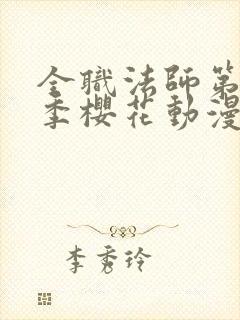 全職法師第
季櫻花動漫
李秀玲